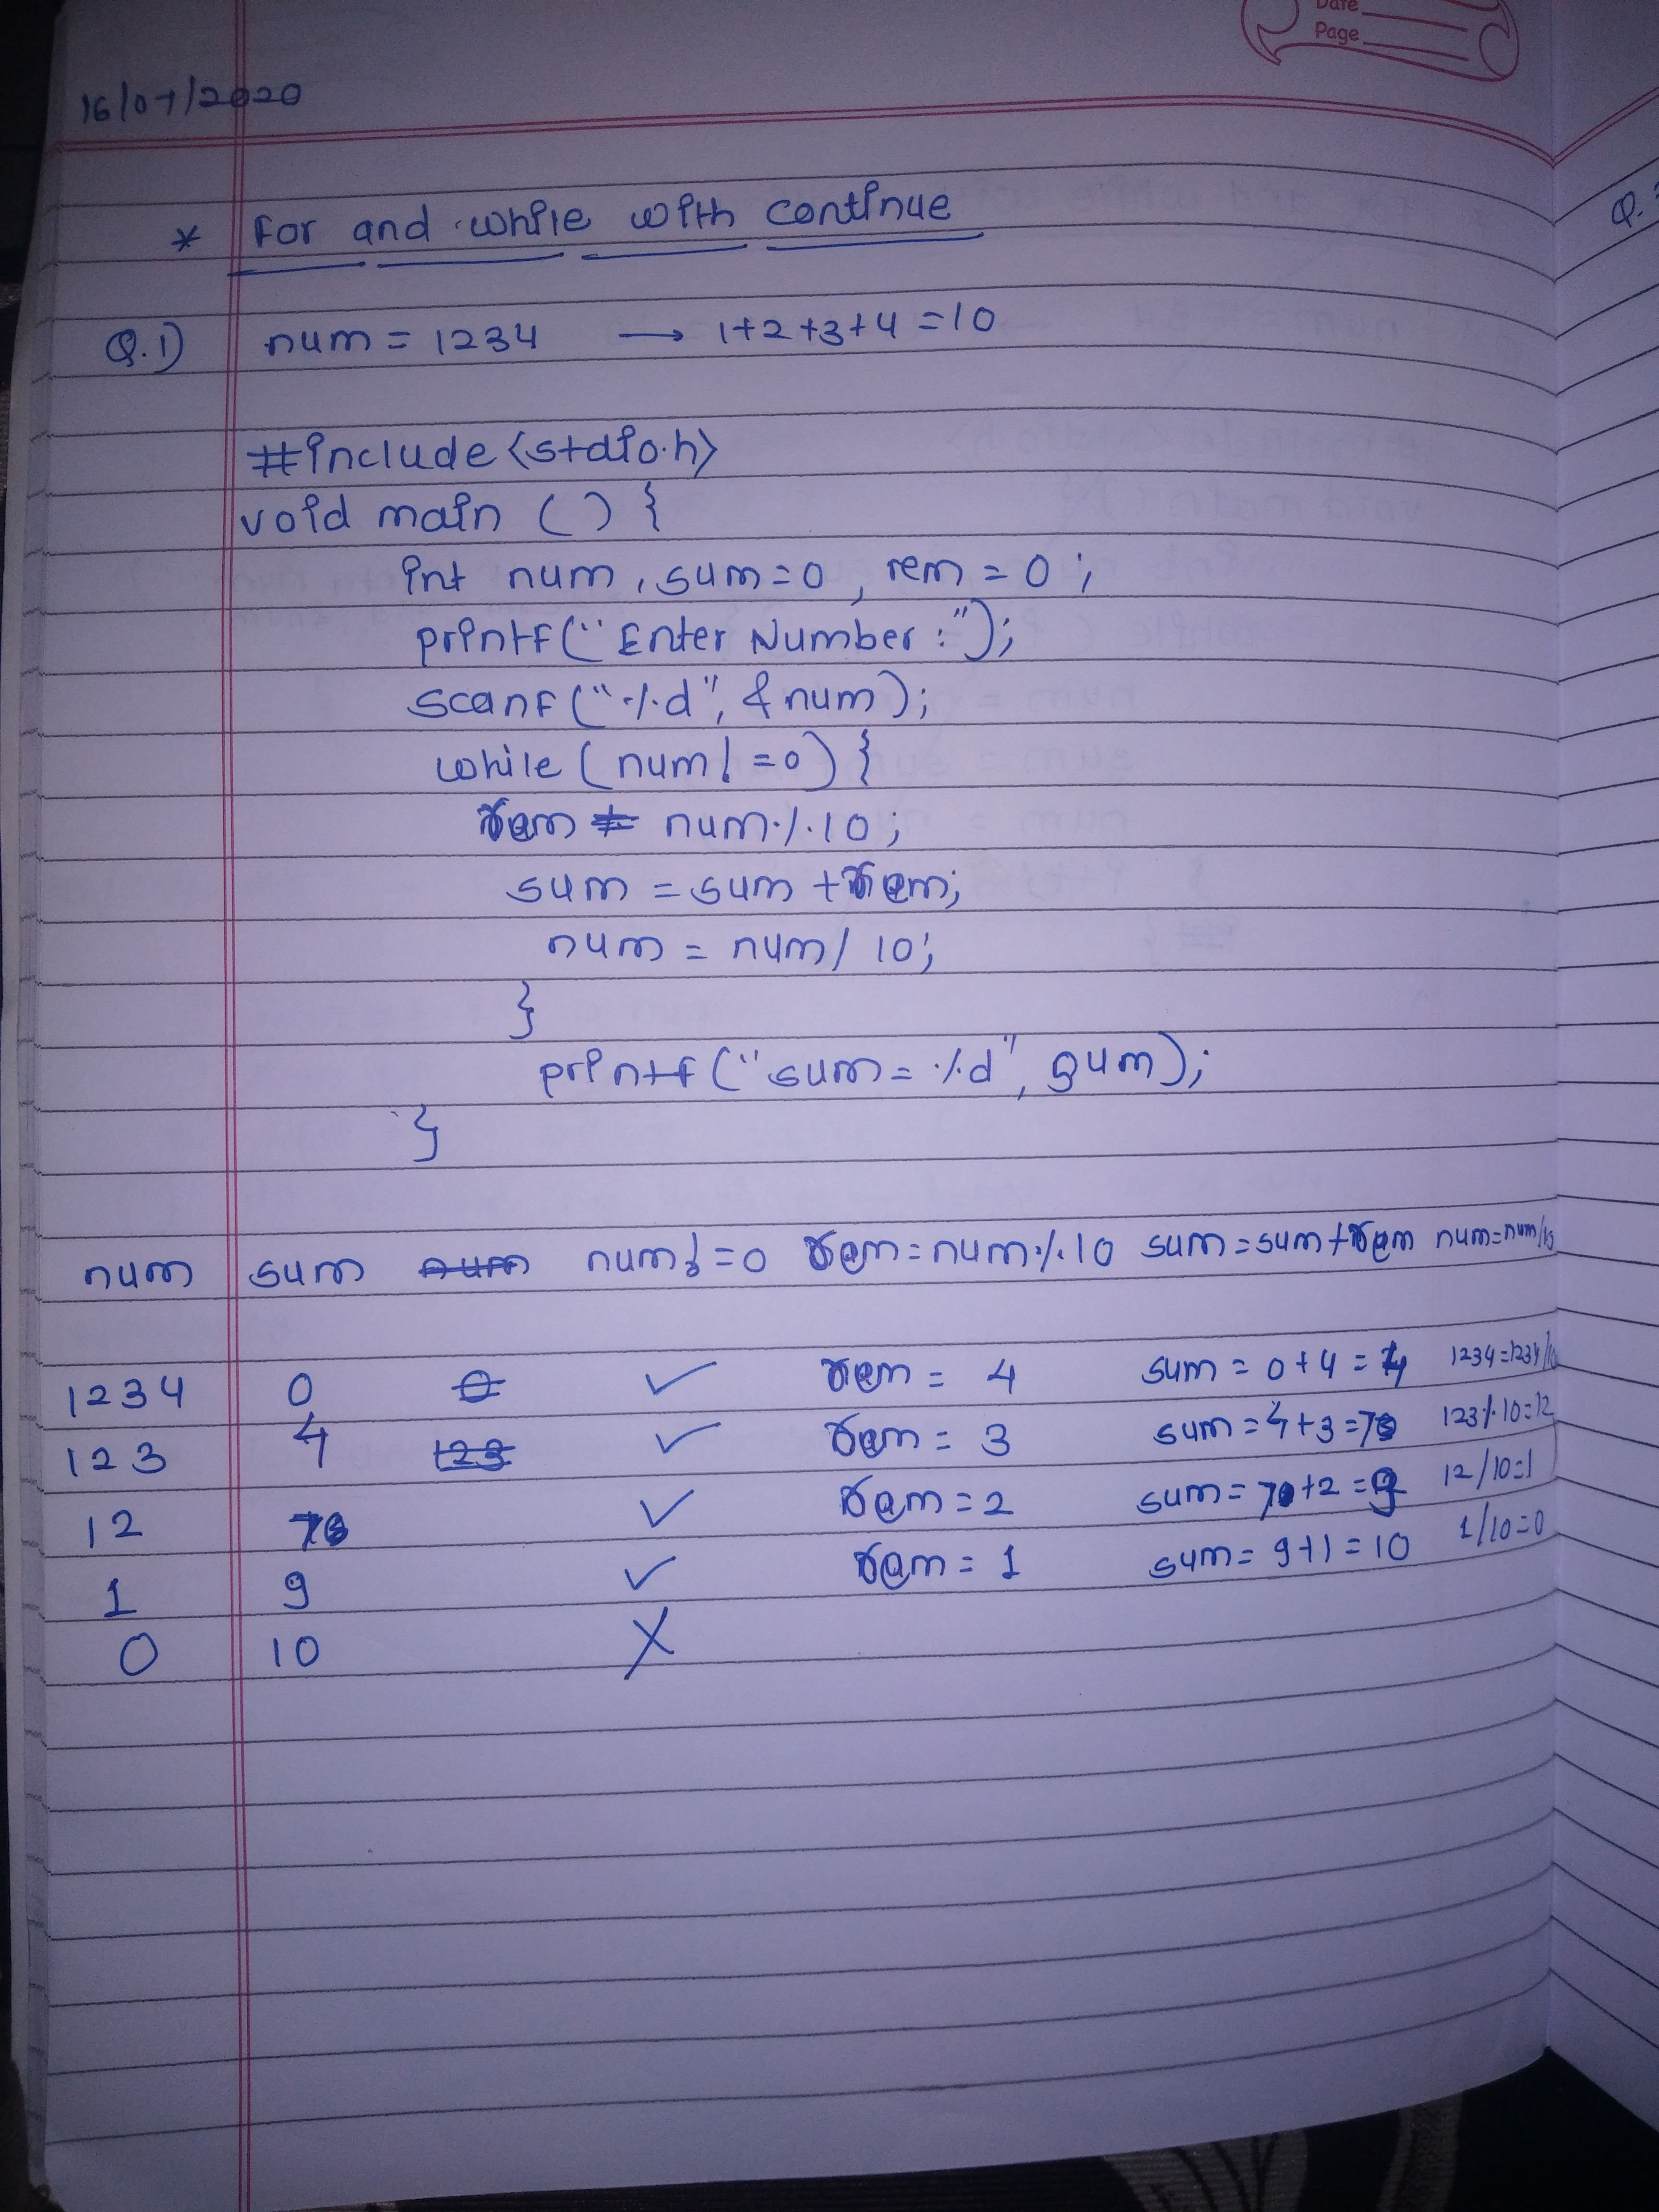 Date
Page
16/07/2020
* For and while with continue
Q.1) num = 1234 → 1+2+3+4=10
#include<stdio.h>
void main () {
int num, sum=0, rem = 0;
printf("Enter Number:");
scanf("%d", &num);
while (num!=0) {
rem = num%10;
sum = sum + rem;
num = num/ 10;
}
printf("sum= %d", sum);
}
num sum num num!=0 rem=num%10 sum=sum+rem num=num/10
1234 0 0 ✓ rem = 4 sum = 0+4 = 4 1234=1234/10
123 4 123 ✓ rem = 3 sum=4+3=7 123%10=12
12 7 ✓ rem=2 sum=7+2=9 12/10=1
1 9 ✓ rem=1 sum=9+1=10 1/10=0
0 10 X
Q.